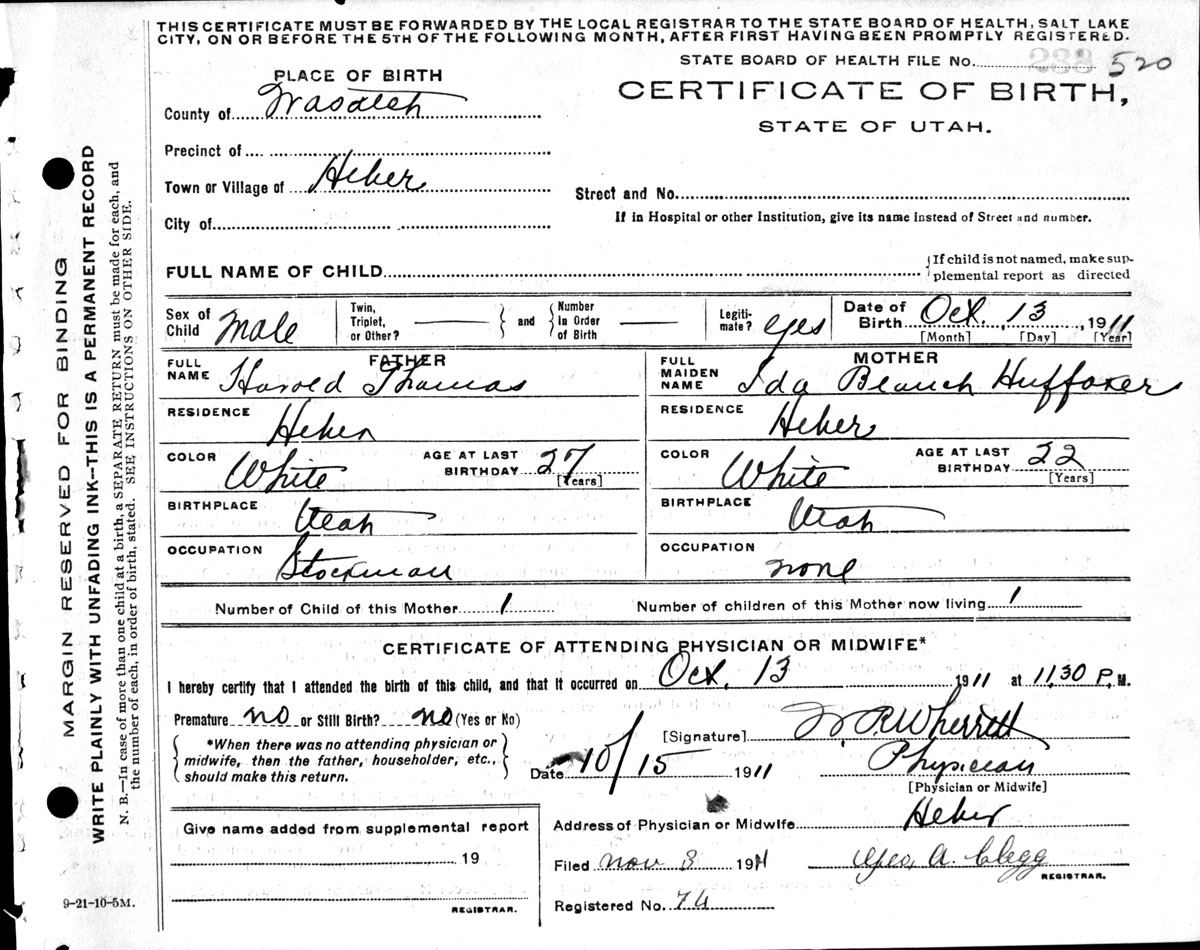 THIS CERTIFICATE MUST BE FORWARDED BY THE LOCAL REGISTRAR TO THE STATE BOARD OF HEALTH, SALT LAKE
CITY, ON OR BEFORE THE 5TH OF THE FOLLOWING MONTH, AFTER FIRST HAVING BEEN PROMPTLY REGISTERED.
STATE BOARD OF HEALTH FILE No. 233 520
PLACE OF BIRTH
CERTIFICATE OF BIRTH,
STATE OF UTAH.
County of Wasatch
Precinct of
Town or Village of Heber
Street and No.
If in Hospital or other Institution, give its name instead of Street and number.
City of
FULL NAME OF CHILD
{If child is not named, make sup-
plemental report as directed
Sex of Child Male
Twin, Triplet, or Other? —— } and { Number In Order of Birth ——
Legiti-mate? yes
Date of Birth Oct. 13, 1911
[Month] [Day] [Year]
FATHER
FULL NAME Harold Thomas
MOTHER
FULL MAIDEN NAME Ida Blanch Huffaker
RESIDENCE Heber
RESIDENCE Heber
COLOR White AGE AT LAST BIRTHDAY 27 [Years]
COLOR White AGE AT LAST BIRTHDAY 22 [Years]
BIRTHPLACE Utah
BIRTHPLACE Utah
OCCUPATION Stockman
OCCUPATION none
Number of Child of this Mother 1
Number of children of this Mother now living 1
CERTIFICATE OF ATTENDING PHYSICIAN OR MIDWIFE*
I hereby certify that I attended the birth of this child, and that it occurred on Oct. 13 1911 at 11,30 P. M.
Premature no or Still Birth? no (Yes or No)
{ *When there was no attending physician or
midwife, then the father, householder, etc.,
should make this return. }
[Signature] W. R. Wherritt
Date 10/15 1911
Physician
[Physician or Midwife]
Give name added from supplemental report
19
REGISTRAR.
Address of Physician or Midwife Heber
Filed Nov 3 1911 Geo. A. Clegg
REGISTRAR.
Registered No. 74
9-21-10-5M.
MARGIN RESERVED FOR BINDING
WRITE PLAINLY WITH UNFADING INK—THIS IS A PERMANENT RECORD
N. B.—In case of more than one child at a birth, a SEPARATE RETURN must be made for each, and
the number of each, in order of birth, stated. SEE INSTRUCTIONS ON OTHER SIDE.